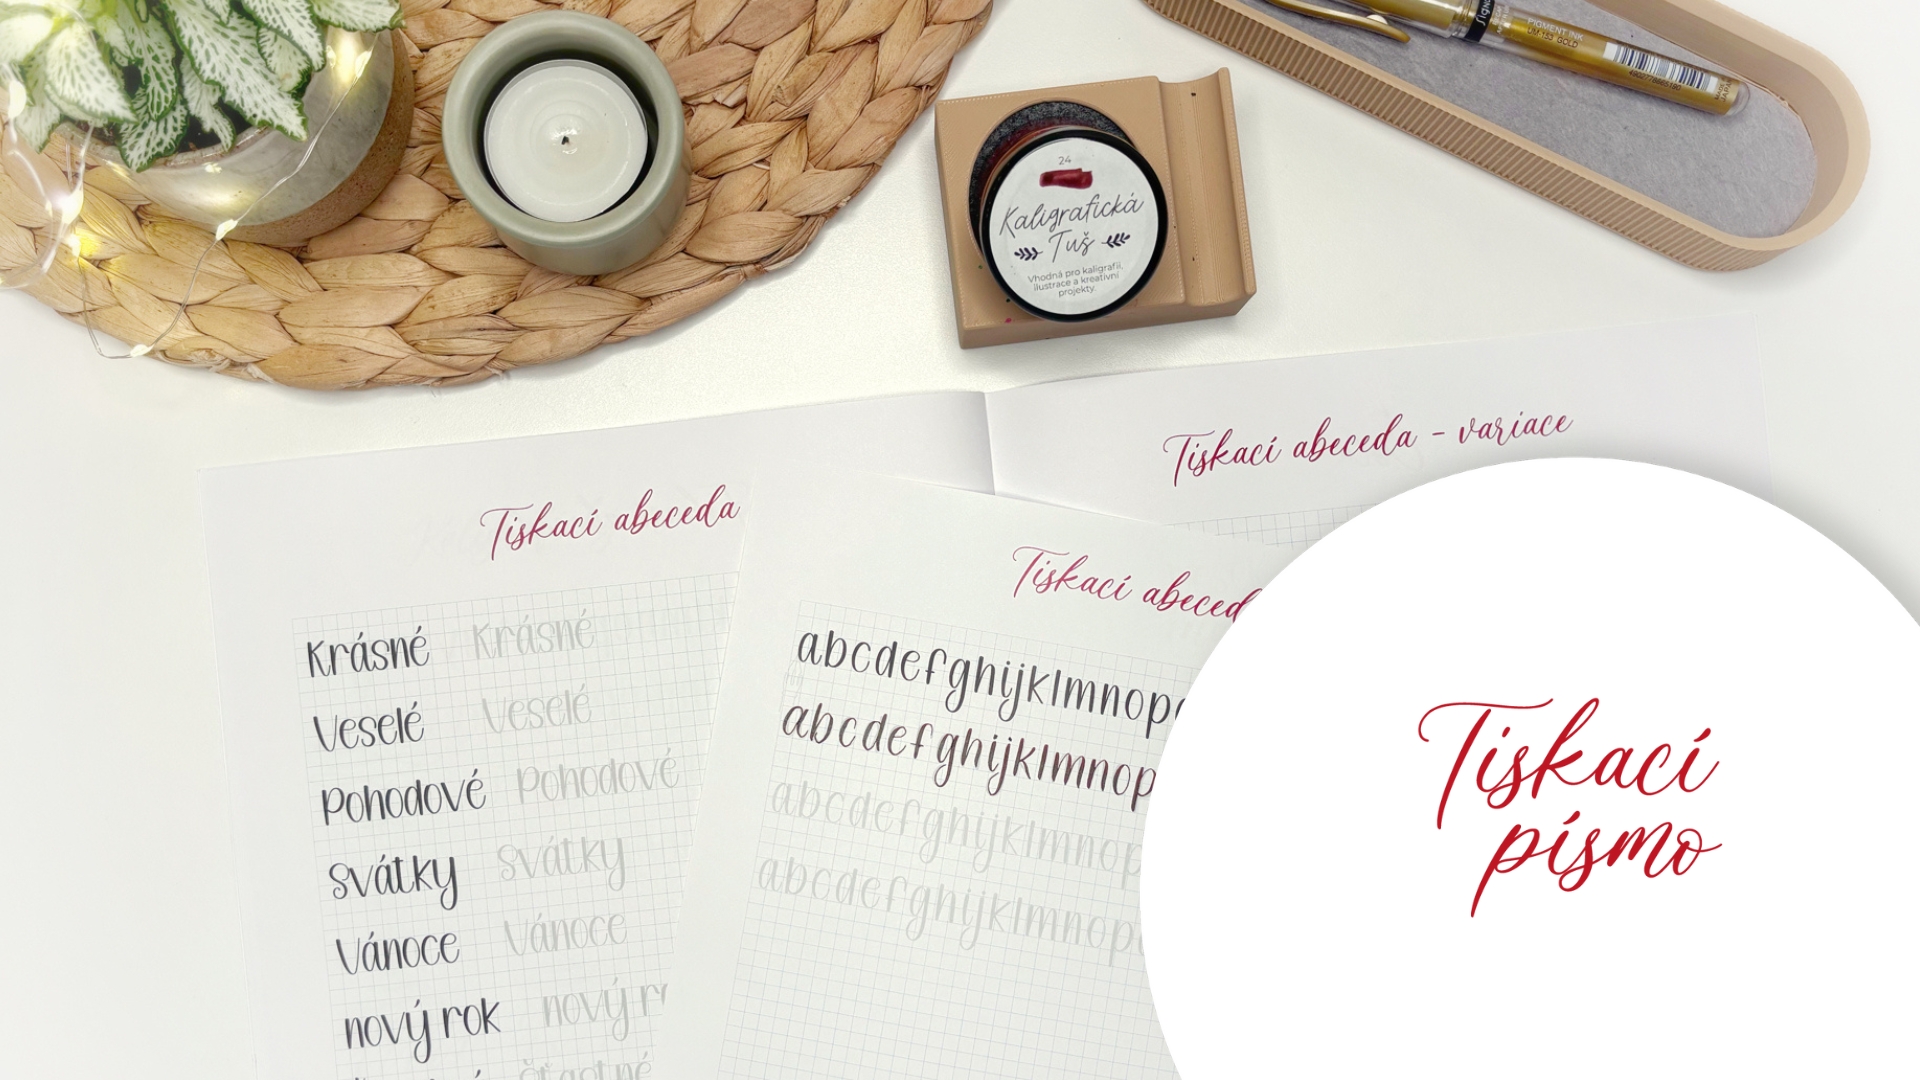 PIGMENT INK
UM-153 GOLD
24
Kaligrafická
Tuš
Vhodná pro kaligrafii,
ilustrace a kreativní
projekty.
Tiskací abeceda - variace
Tiskací abeceda
Krásné Krásné
Veselé Veselé
Pohodové Pohodové
svátky svátky
Vánoce Vánoce
nový rok nový r
Tiskací abeced
abcdefghijklmnop
abcdefghijklmnop
abcdefghijklmnop
abcdefghijklmnop
Tiskací
písmo